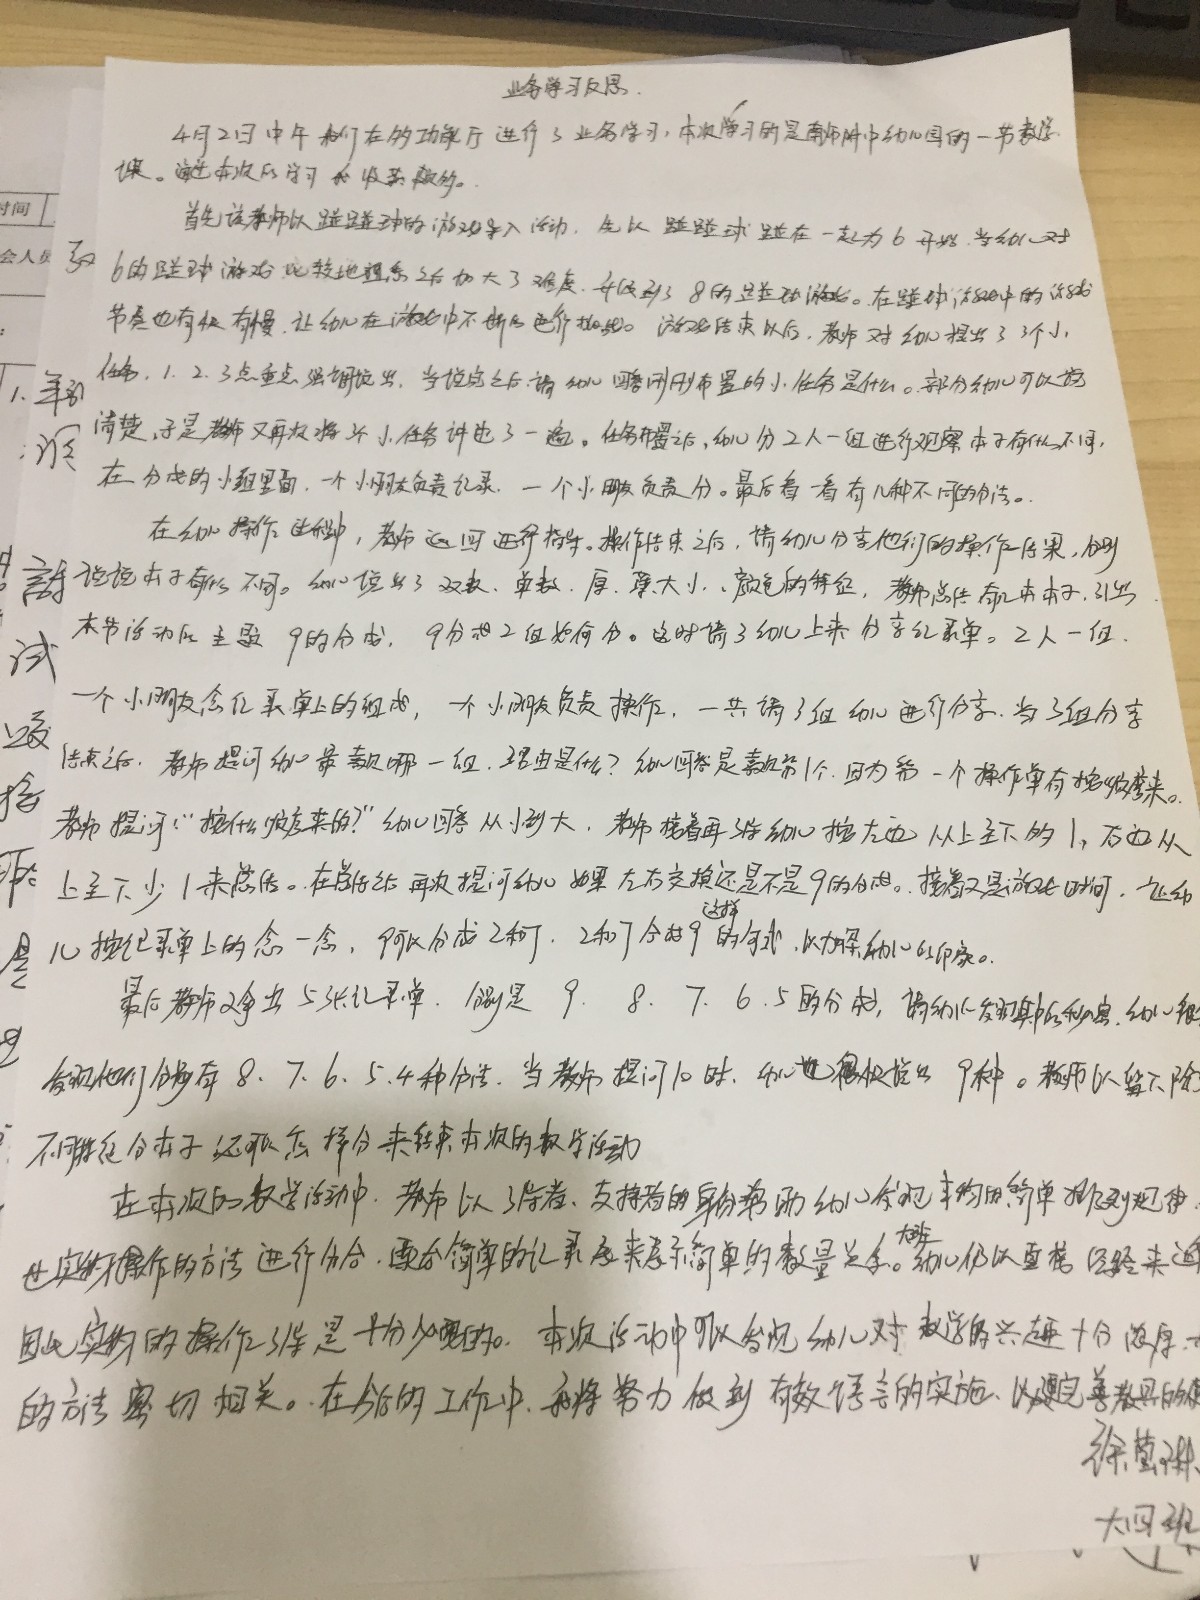 业务学习反思.
4月2日中午我们在多功能厅进行了业务学习,本次学习的是南师附中幼儿园的一节数学
课。通过本次的学习我收获颇多。
首先该教师以碰碰球的游戏导入活动,先以碰碰球碰在一起为6开始,当幼儿对
6的碰球游戏比较地熟悉之后加大了难度,升级到了8的碰球游戏。在碰球游戏中的游戏
节奏也有快有慢,让幼儿在游戏中不断的进行挑战。游戏结束以后,教师对幼儿提出了3个小
任务,1、2、3点重点强调说出,当说完之后请幼儿回答刚刚布置的小任务是什么。部分幼儿可以说
清楚,于是教师又再次将3个小任务讲述了一遍。任务布置之后,幼儿分2人一组进行观察本子有什么不同,
在分成的小组里面,一个小朋友负责记录,一个小朋友负责分。最后看一看有几种不同的分法。
在幼儿操作过程中,教师巡回进行指导。操作结束之后,请幼儿分享他们的操作结果,分别
说说本子有什么不同。幼儿说出了双数、单数、厚、薄、大小、颜色的特征,教师总结有几本本子,引出
本节活动的主题9的分成,9分成2组如何分。这时请了幼儿上来分享记录单。2人一组,
一个小朋友念记录单上的组成,一个小朋友负责操作,一共请了3组幼儿进行分享,当3组分享
结束之后,教师提问幼儿最喜欢哪一组,理由是什么?幼儿回答是喜欢第1个,因为第一个操作单有按顺序来。
教师提问:“按什么顺序来的?”幼儿回答从小到大,教师接着再引导幼儿按左边从上至下多1,右边从
上至下少1来总结。在总结之后再次提问幼儿如果左右交换还是不是9的分成。接着又是游戏时间,让幼
儿按记录单上的念一念,9可以分成2和7,2和7合成9这样的句式,以加深幼儿的印象。
最后教师又拿出5张记录单,分别是9、8、7、6、5的分成,请幼儿发现其中的秘密,幼儿
发现他们分别有8、7、6、5、4种分法,当教师提问10时,幼儿也很快说出9种。教师以留下除了
不同特征分本子还可以怎样分来结束本次的数学活动
在本次的数学活动中,教师以引导者、支持者的身份帮助幼儿发现事物的简单排列规律,
也实物操作的方法进行分合,要会简单的记录表来表示简单的数量关系。大班幼儿仍以直接经验来
因此实物的操作引导是十分必要的。本次活动中可以发现幼儿对数学的兴趣十分浓厚,
的方法密切相关。在今后的工作中,我将努力做到有效语言的实施,以及完善教具的
徐慧琳
大四班
时间
会人员
1.
试
是